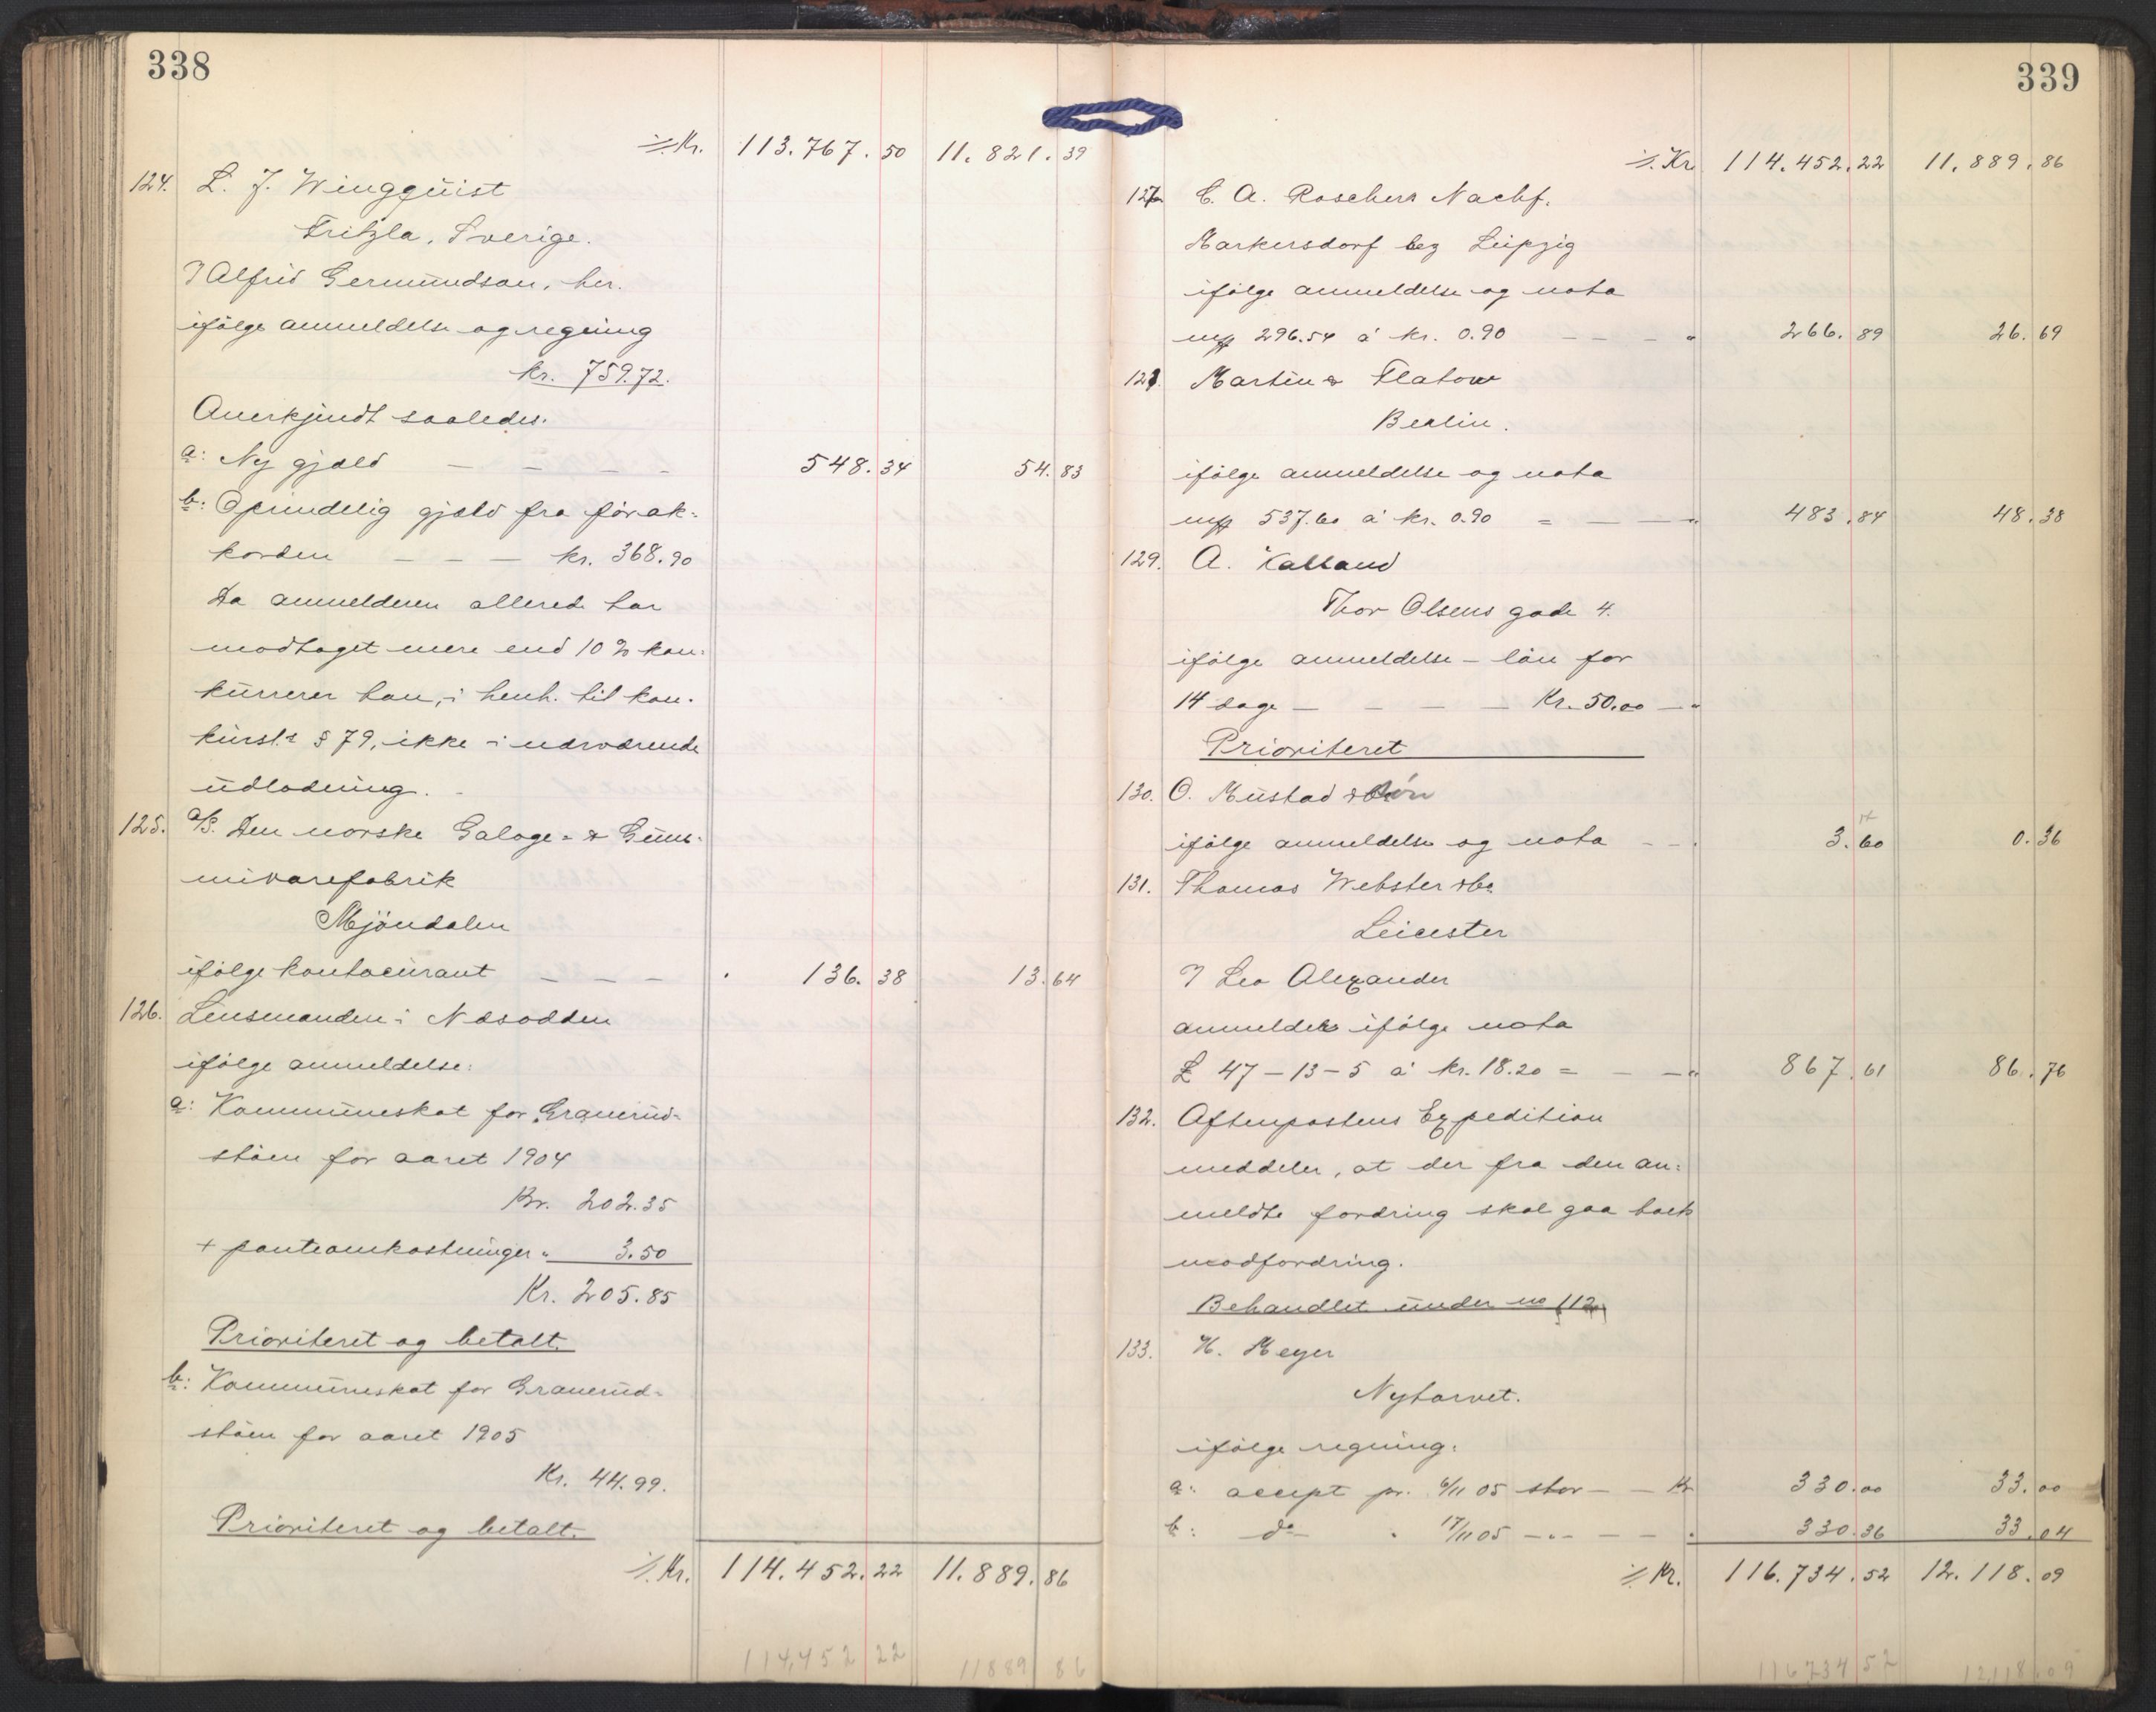 338
./. Kr. 113.767.50 11.821.39
124. L. J. Wingquist
Fritzla, Sverige.
? Alfrid Germundson, her.
ifölge anmeldelse og regning
kr. 759.72.
Anerkjendt saaledes.
a: Ny gjæld — — — — 548.34 54.83
b: Oprindelig gjæld fra för ak-
korden — — — kr. 368.90
Da anmelderen allerede har
modtaget mere end 10% kon-
kurrerer han, i henh. til kon-
kursl.s § 79, ikke i nærværende
udlodning.
125. A/S. Den norske Galoge- & Gum-
mivarefabrik
Mjöndalen
ifölge kontocurant — — — 136.38 13.64
126. Lensmanden i Næsodden
ifölge anmeldelse:
a: Kommuneskat for Granerud-
stöen for aaret 1904
Kr. 202.35
+ panteomkostninger " 3.50
Kr. 205.85
Prioriteret og betalt.
b: Kommuneskat for Granerud-
stöen for aaret 1905
Kr. 44.99.
Prioriteret og betalt.
./. Kr. 114.452.22 11.889.86
114,452 22 11889 86
339
./. Kr. 114.452.22 11.889.86
127. C. A. Roschers Nachf.
Markersdorf bez Leipzig
ifölge anmeldelse og nota
mp 296.54 á kr. 0.90 — — — " 266.89 26.69
128. Martin & Flatow
Berlin.
ifölge anmeldelse og nota
mp 537.60 á kr. 0.90 = — — " 483.84 48.38
129. A. Kalland
Thor Olsens gade 4.
ifölge anmeldelse — lön for
14 dage — — — — Kr. 50.00 — "
Prioriteret
130. O. Mustad & Sön
ifölge anmeldelse og nota — — . 3.60 0.36
131. Thomas Webster & Co.
Leicester
? Leo Alexander
anmelder ifölge nota
£ 47-13-5 á kr. 18.20 = — — " 867.61 86.76
132. Aftenpostens Expedition
meddeler, at der fra den an-
meldte fordring skal gaa
modfordring.
Behandlet under no 112
133. H. Meyer
Nytorvet.
ifölge regning:
a: accept pr. 6/11 05 stor — — Kr 330.00 33.00
b: do " 17/11 05 — " — — — " 330.36 33.04
./. Kr. 116.734.52 12.118.09
116734 52 12,118.09